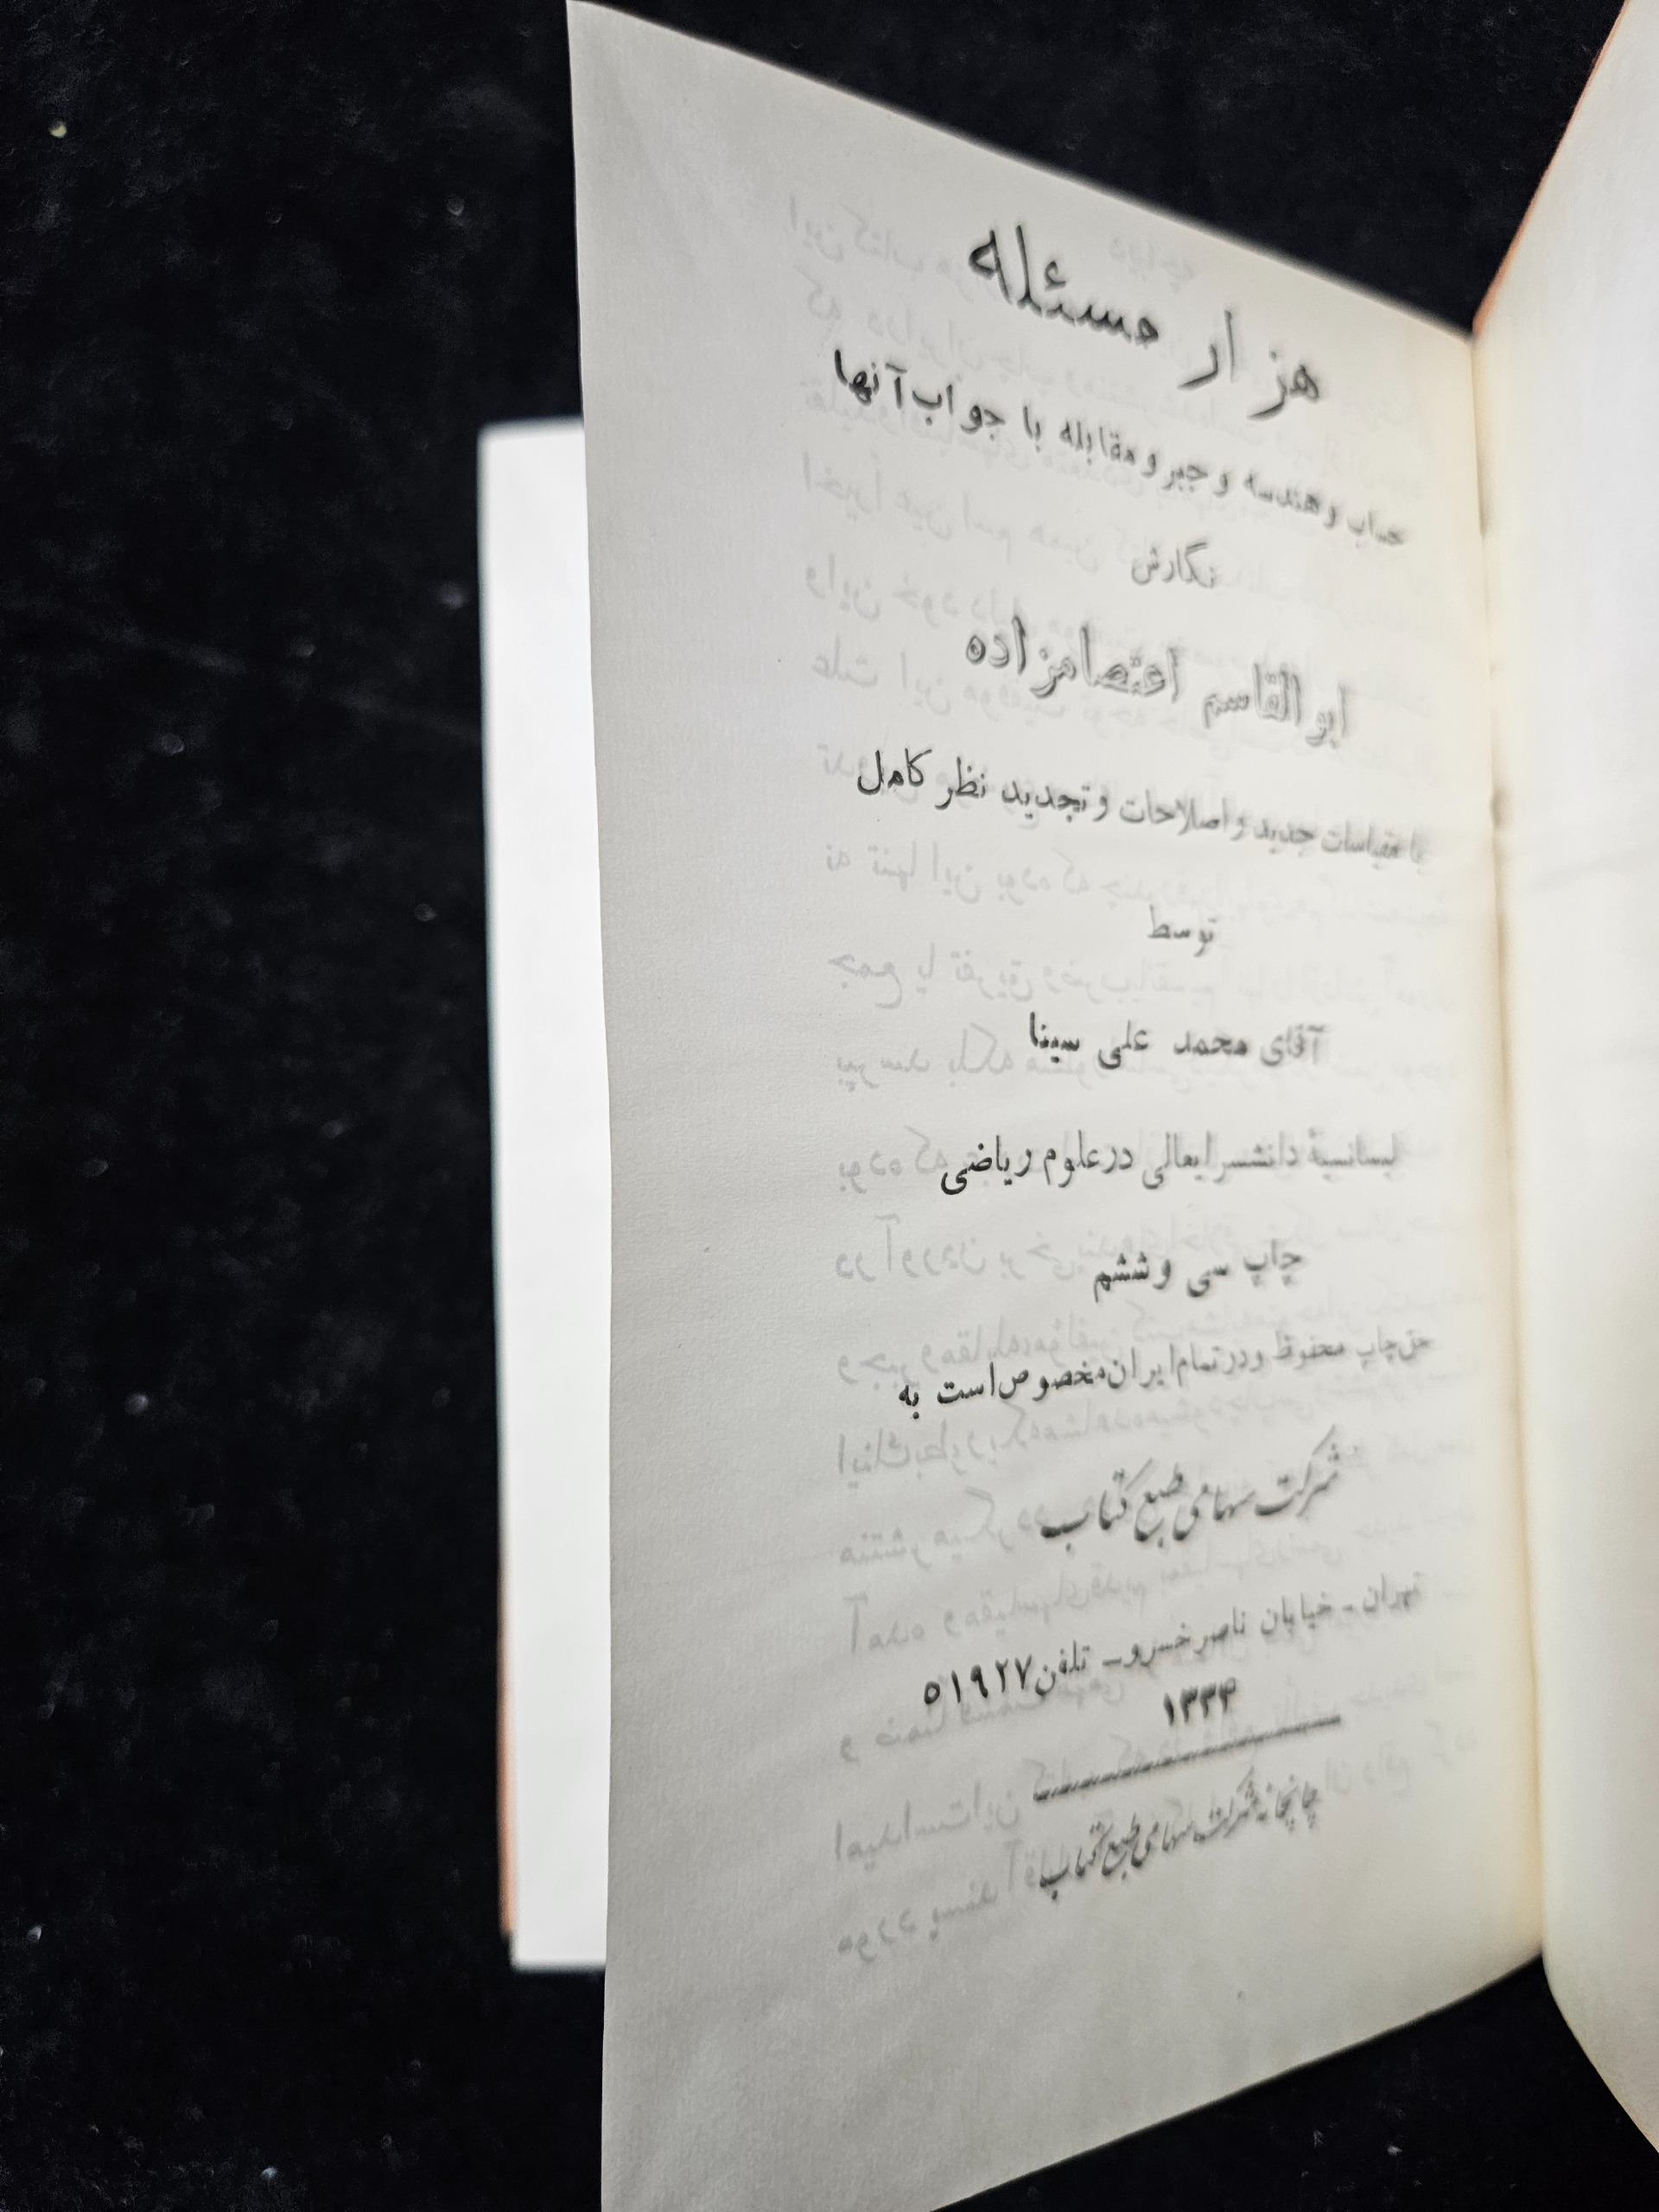 هزار مسئله
حساب و هندسه و جبر و مقابله با جواب آنها
نگارش
ابوالقاسم اعتصامزاده
با مقیاسات جدید و اصلاحات و تجدید نظر کامل
توسط
آقای محمد علی سینا
لیسانسیهٔ دانشسرایعالی در علوم ریاضی
چاپ سی و ششم
حق چاپ محفوظ و در تمام ایران مخصوص است به
شرکت سهامی طبع کتاب
تهران - خیابان ناصر خسرو - تلفن ۵۱۹۲۷
۱۳۳۴
چاپخانه شرکت سهامی طبع کتاب